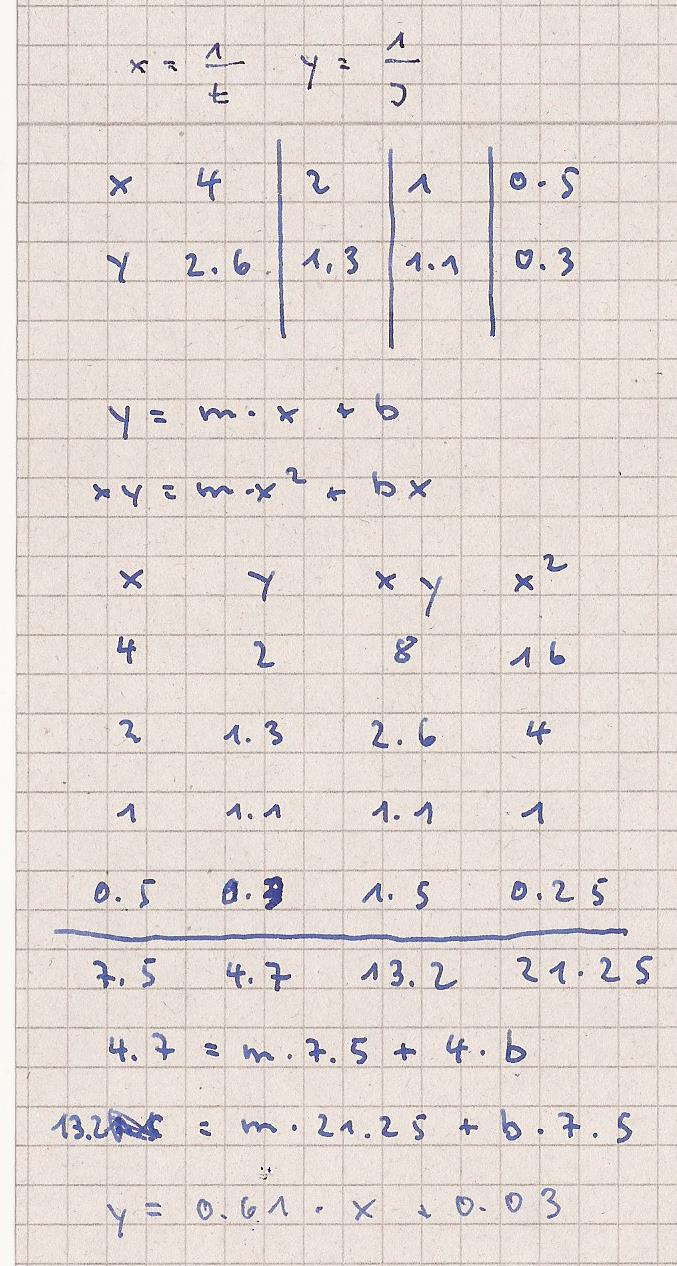 x = 1/t y = 1/J
x 4 | 2 | 1 | 0.5
y 2.6 | 1.3 | 1.1 | 0.3
y = m · x + b
xy = m · x² + bx
x y xy x²
4 2 8 16
2 1.3 2.6 4
1 1.1 1.1 1
0.5 0.3 1.5 0.25
7.5 4.7 13.2 21.25
4.7 = m · 7.5 + 4 · b
13.2 = m · 21.25 + b · 7.5
y = 0.61 · x + 0.03